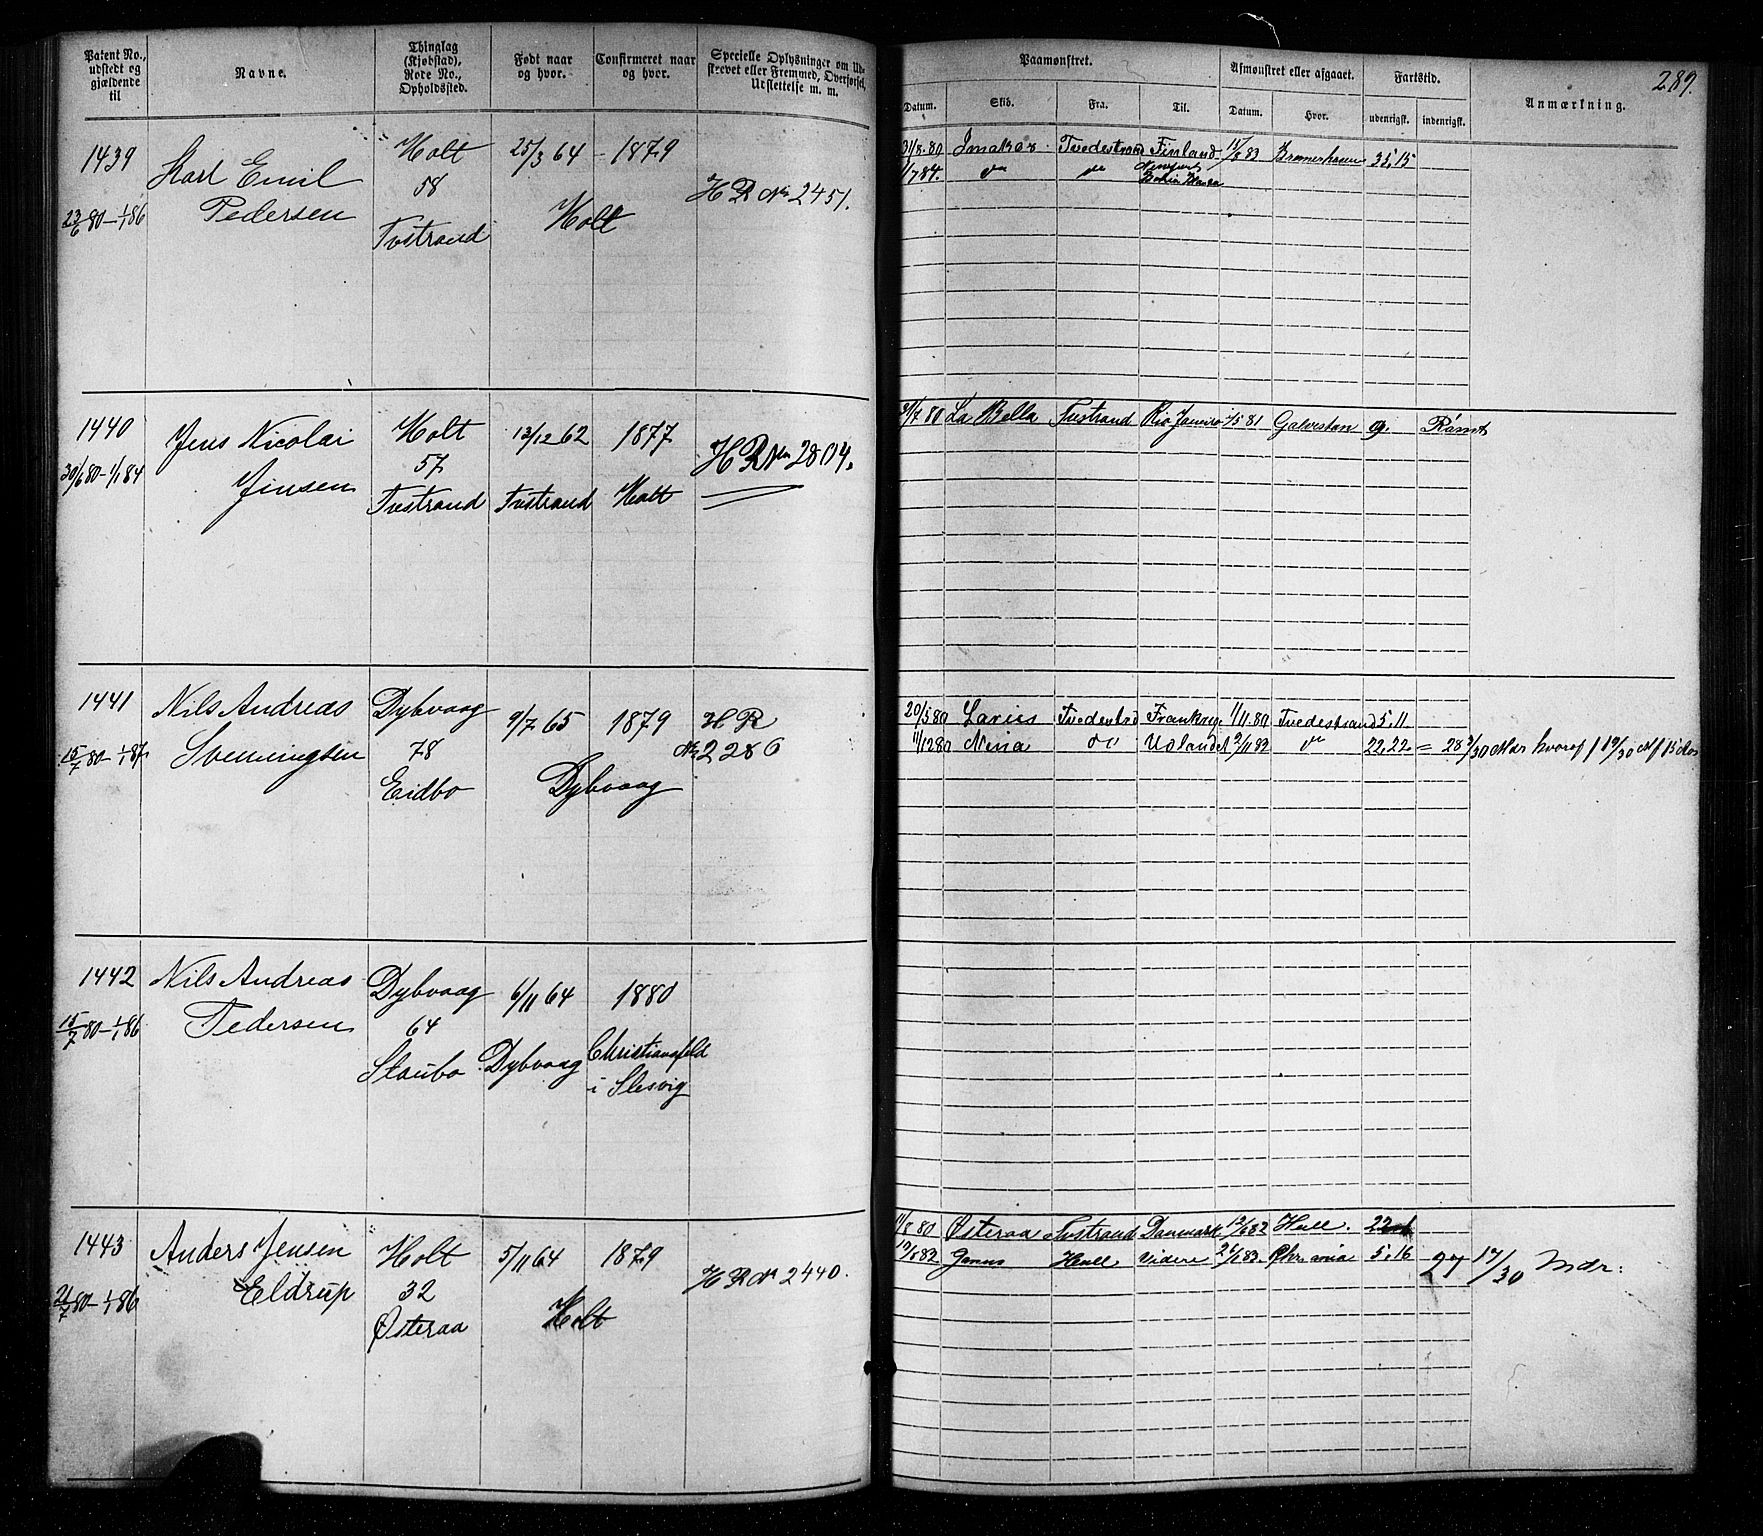 Patent No., udstedt og gjældende til
Navne.
Thinglag (Kjøbstad), Rode No., Opholdssted.
Født naar og hvor.
Confirmeret naar og hvor.
Specielle Oplysninger om Udskrevet eller Fremmed, Overførsel, Udslettelse m. m.
Paamønstret.
Afmønstret eller afgaaet.
Fartstid.
289.
Datum.
Skib.
Fra.
Til.
Datum.
Hvor.
udenrigsk.
indenrigsk.
Anmærkning.
1439
23/6 80-1/1 86
Karl Emil
Pedersen
Holt
58
Tvstrand
25/3 64
1879
Holt
HR No 2451.
31/8 80 Tvedestrand Finland 15/8 83 Bremerhaven 35,15
1/7 84. do do
1440
30/6 80-1/1 84
Jens Nicolai
Jensen
Holt
57
Tvstrand
13/12 62
Tvstrand
1877
Holt
HR No 2804.
31/7 80 La Bella Tvstrand Rio Janeiro /5 81 Galveston 9. Rømt
1441
15/7 80-1/1 87
Nils Andreas
Svenningsen
Dybvaag
78
Eidbo
9/7 65
1879
Dybvaag
HR
No 2286
20/5 80 Tvedestrd Frankrige 1/11 80 Tvedestrand 5,11
11/12 80 Nina do Udlandet 2/11 82 do 22,22 = 28 3/30 Mdr hvoraf
1442
15/7 80-1/1 86
Nils Andreas
Pedersen
Dybvaag
64
Staubo
6/11 64
Dybvaag
1880
Christiansfeld
i Slesvig
1443
21/7 80-1/1 86
Anders Jensen
Eldrup
Holt
32
Østeraa
5/11 64
1879
Holt
HR No 2440.
11/8 80 Østeraa Tvstrand Danmark 12/6 82 Hull. 22
12/6 82 Hull videre 5,16 27 17/30 Mdr.